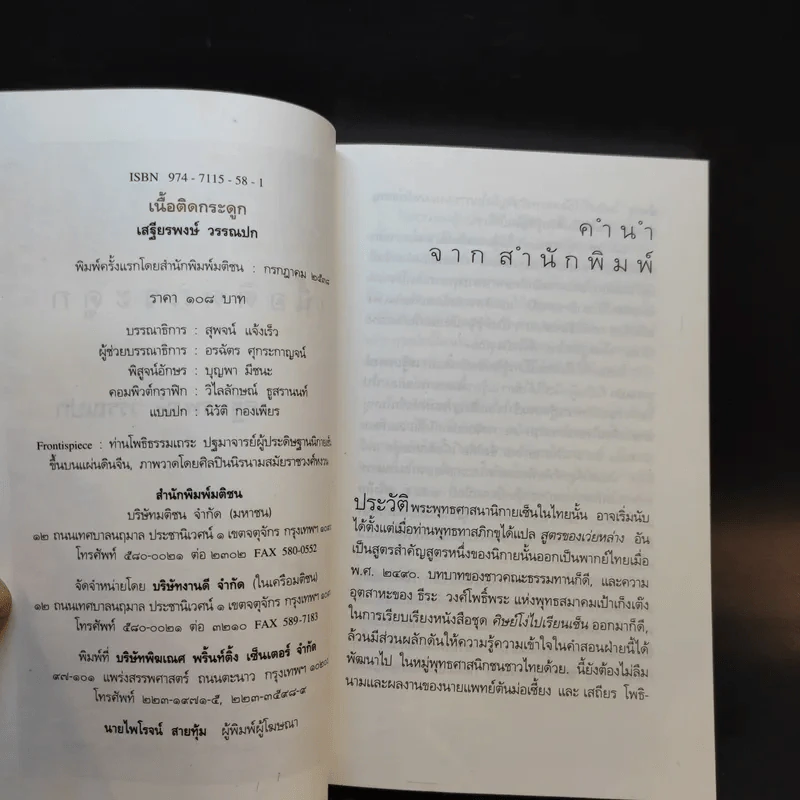 ISBN 974 - 7115 - 58 - 1
เนื้อติดกระดูก
เสฐียรพงษ์ วรรณปก
พิมพ์ครั้งแรกโดยสำนักพิมพ์มติชน : กรกฎาคม ๒๕๓๘
ราคา ๑๐๘ บาท
บรรณาธิการ : สุพจน์ แจ้งเร็ว
ผู้ช่วยบรรณาธิการ : อรฉัตร ศุกระกาญจน์
พิสูจน์อักษร : บุญพา มีชนะ
คอมพิวต์กราฟิก : วิไลลักษณ์ ธูสรานนท์
แบบปก : นิวัติ กองเพียร
Frontispiece : ท่านโพธิธรรมเถระ ปฐมาจารย์ผู้ประดิษฐานนิกายเซ็น
ขึ้นบนแผ่นดินจีน, ภาพวาดโดยศิลปินนิรนามสมัยราชวงศ์หงวน
สำนักพิมพ์มติชน
บริษัทมติชน จำกัด (มหาชน)
๑๒ ถนนเทศบาลนฤมาล ประชานิเวศน์ ๑ เขตจตุจักร กรุงเทพฯ
โทรศัพท์ ๕๘๐-๐๐๒๑ ต่อ ๒๓๐๒ FAX 580-0552
จัดจำหน่ายโดย บริษัทงานดี จำกัด (ในเครือมติชน)
๑๒ ถนนเทศบาลนฤมาล ประชานิเวศน์ ๑ เขตจตุจักร กรุงเทพฯ
โทรศัพท์ ๕๘๐-๐๐๒๑ ต่อ ๓๒๑๐ FAX 589-7183
พิมพ์ที่ บริษัทพิฆเณศ พริ้นท์ติ้ง เซ็นเตอร์ จำกัด
๙๗-๑๐๑ แพร่งสรรพศาสตร์ ถนนตะนาว กรุงเทพฯ ๑๐๒๐๐
โทรศัพท์ ๒๒๓-๑๙๗๑-๕, ๒๒๓-๓๕๙๘-๙
นายไพโรจน์ สายทุ้ม ผู้พิมพ์ผู้โฆษณา
คำนำ
จากสำนักพิมพ์
ประวัติพระพุทธศาสนานิกายเซ็นในไทยนั้น อาจเริ่มนับ
ได้ตั้งแต่เมื่อท่านพุทธทาสภิกขุได้แปล สูตรของเว่ยหล่าง อัน
เป็นสูตรสำคัญสูตรหนึ่งของนิกายนั้นออกเป็นพากย์ไทยเมื่อ
พ.ศ. ๒๔๙๐. บทบาทของชาวคณะธรรมทานก็ดี, และความ
อุตสาหะของ ธีระ วงศ์โพธิ์พระ แห่งพุทธสมาคมเป้าเก็งเต๊ง
ในการเรียบเรียงหนังสือชุด ศิษย์โง่ไปเรียนเซ็น ออกมาก็ดี,
ล้วนมีส่วนผลักดันให้ความรู้ความเข้าใจในคำสอนฝ่ายนี้ได้
พัฒนาไป ในหมู่พุทธศาสนิกชนชาวไทยด้วย. นี้ยังต้องไม่ลืม
นามและผลงานของนายแพทย์ตันม่อเซี้ยง และ เสถียร โพธิ-